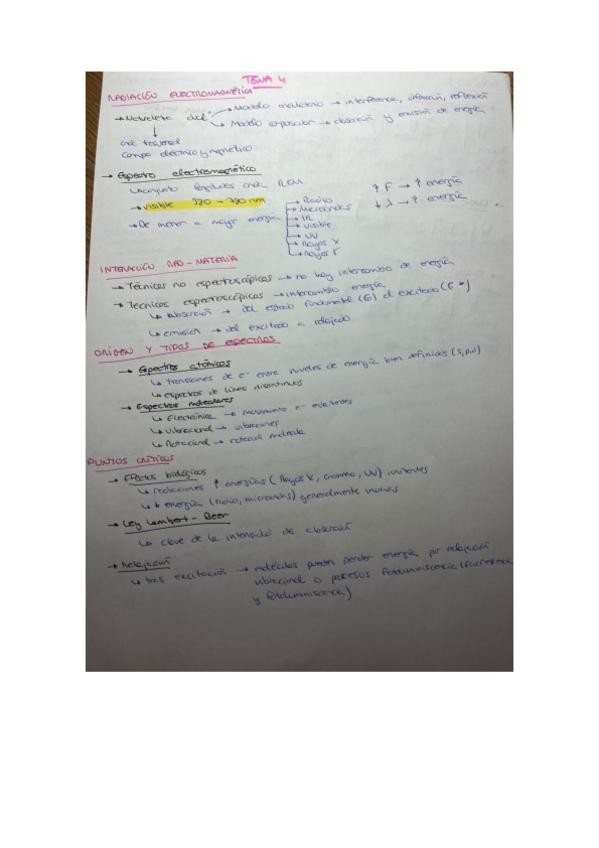 TEMA 4
RADIACIÓN ELECTROMAGNÉTICA
→ Naturaleza dual → Modelo ondulatorio → interferencia, difracción, reflexión
→ Modelo corpuscular → absorción y emisión de energía
campo eléctrico y magnético
→ Espectro electromagnético
↳ conjunto longitudes onda REM
→ visible 380 - 780 nm
↑ F → ↑ energía
↓ λ → ↑ energía
→ De menor a mayor energía
→ Radio
→ Microondas
→ IR
→ visible
→ UV
→ Rayos X
→ Rayos Γ
INTERACCIÓN RAD - MATERIA
→ Técnicas no espectroscópicas → no hay intercambio de energía
→ Tecnicas espectroscópicas → intercambio energía
↳ absorción → del estado fundamental (E) al excitado (E*)
↳ emisión → del excitado a relajado
ORIGEN Y TIPOS DE ESPECTROS
→ Espectros atómicos
↳ transiciones de e- entre niveles de energía bien definidos (s,p,d)
↳ espectros de líneas discontinuos
→ Espectros moleculares
↳ Electrónica → movimiento e-
↳ Vibracional → vibraciones
↳ Rotacional → rotación molécula
PUNTOS CRÍTICOS
→ Efectos biológicos
↳ radiaciones ↑ energías (Rayos X, Gamma, UV) ionizantes
↳ ↓ energía (radio, microondas) generalmente inocuas
→ Ley Lambert - Beer
↳ clave de la intensidad de absorción
→ Relajación
↳ tras excitación → moléculas pueden perder energía por relajación
vibracional o procesos fotoluminiscencia (fluorescencia
y fotoluminiscencia)